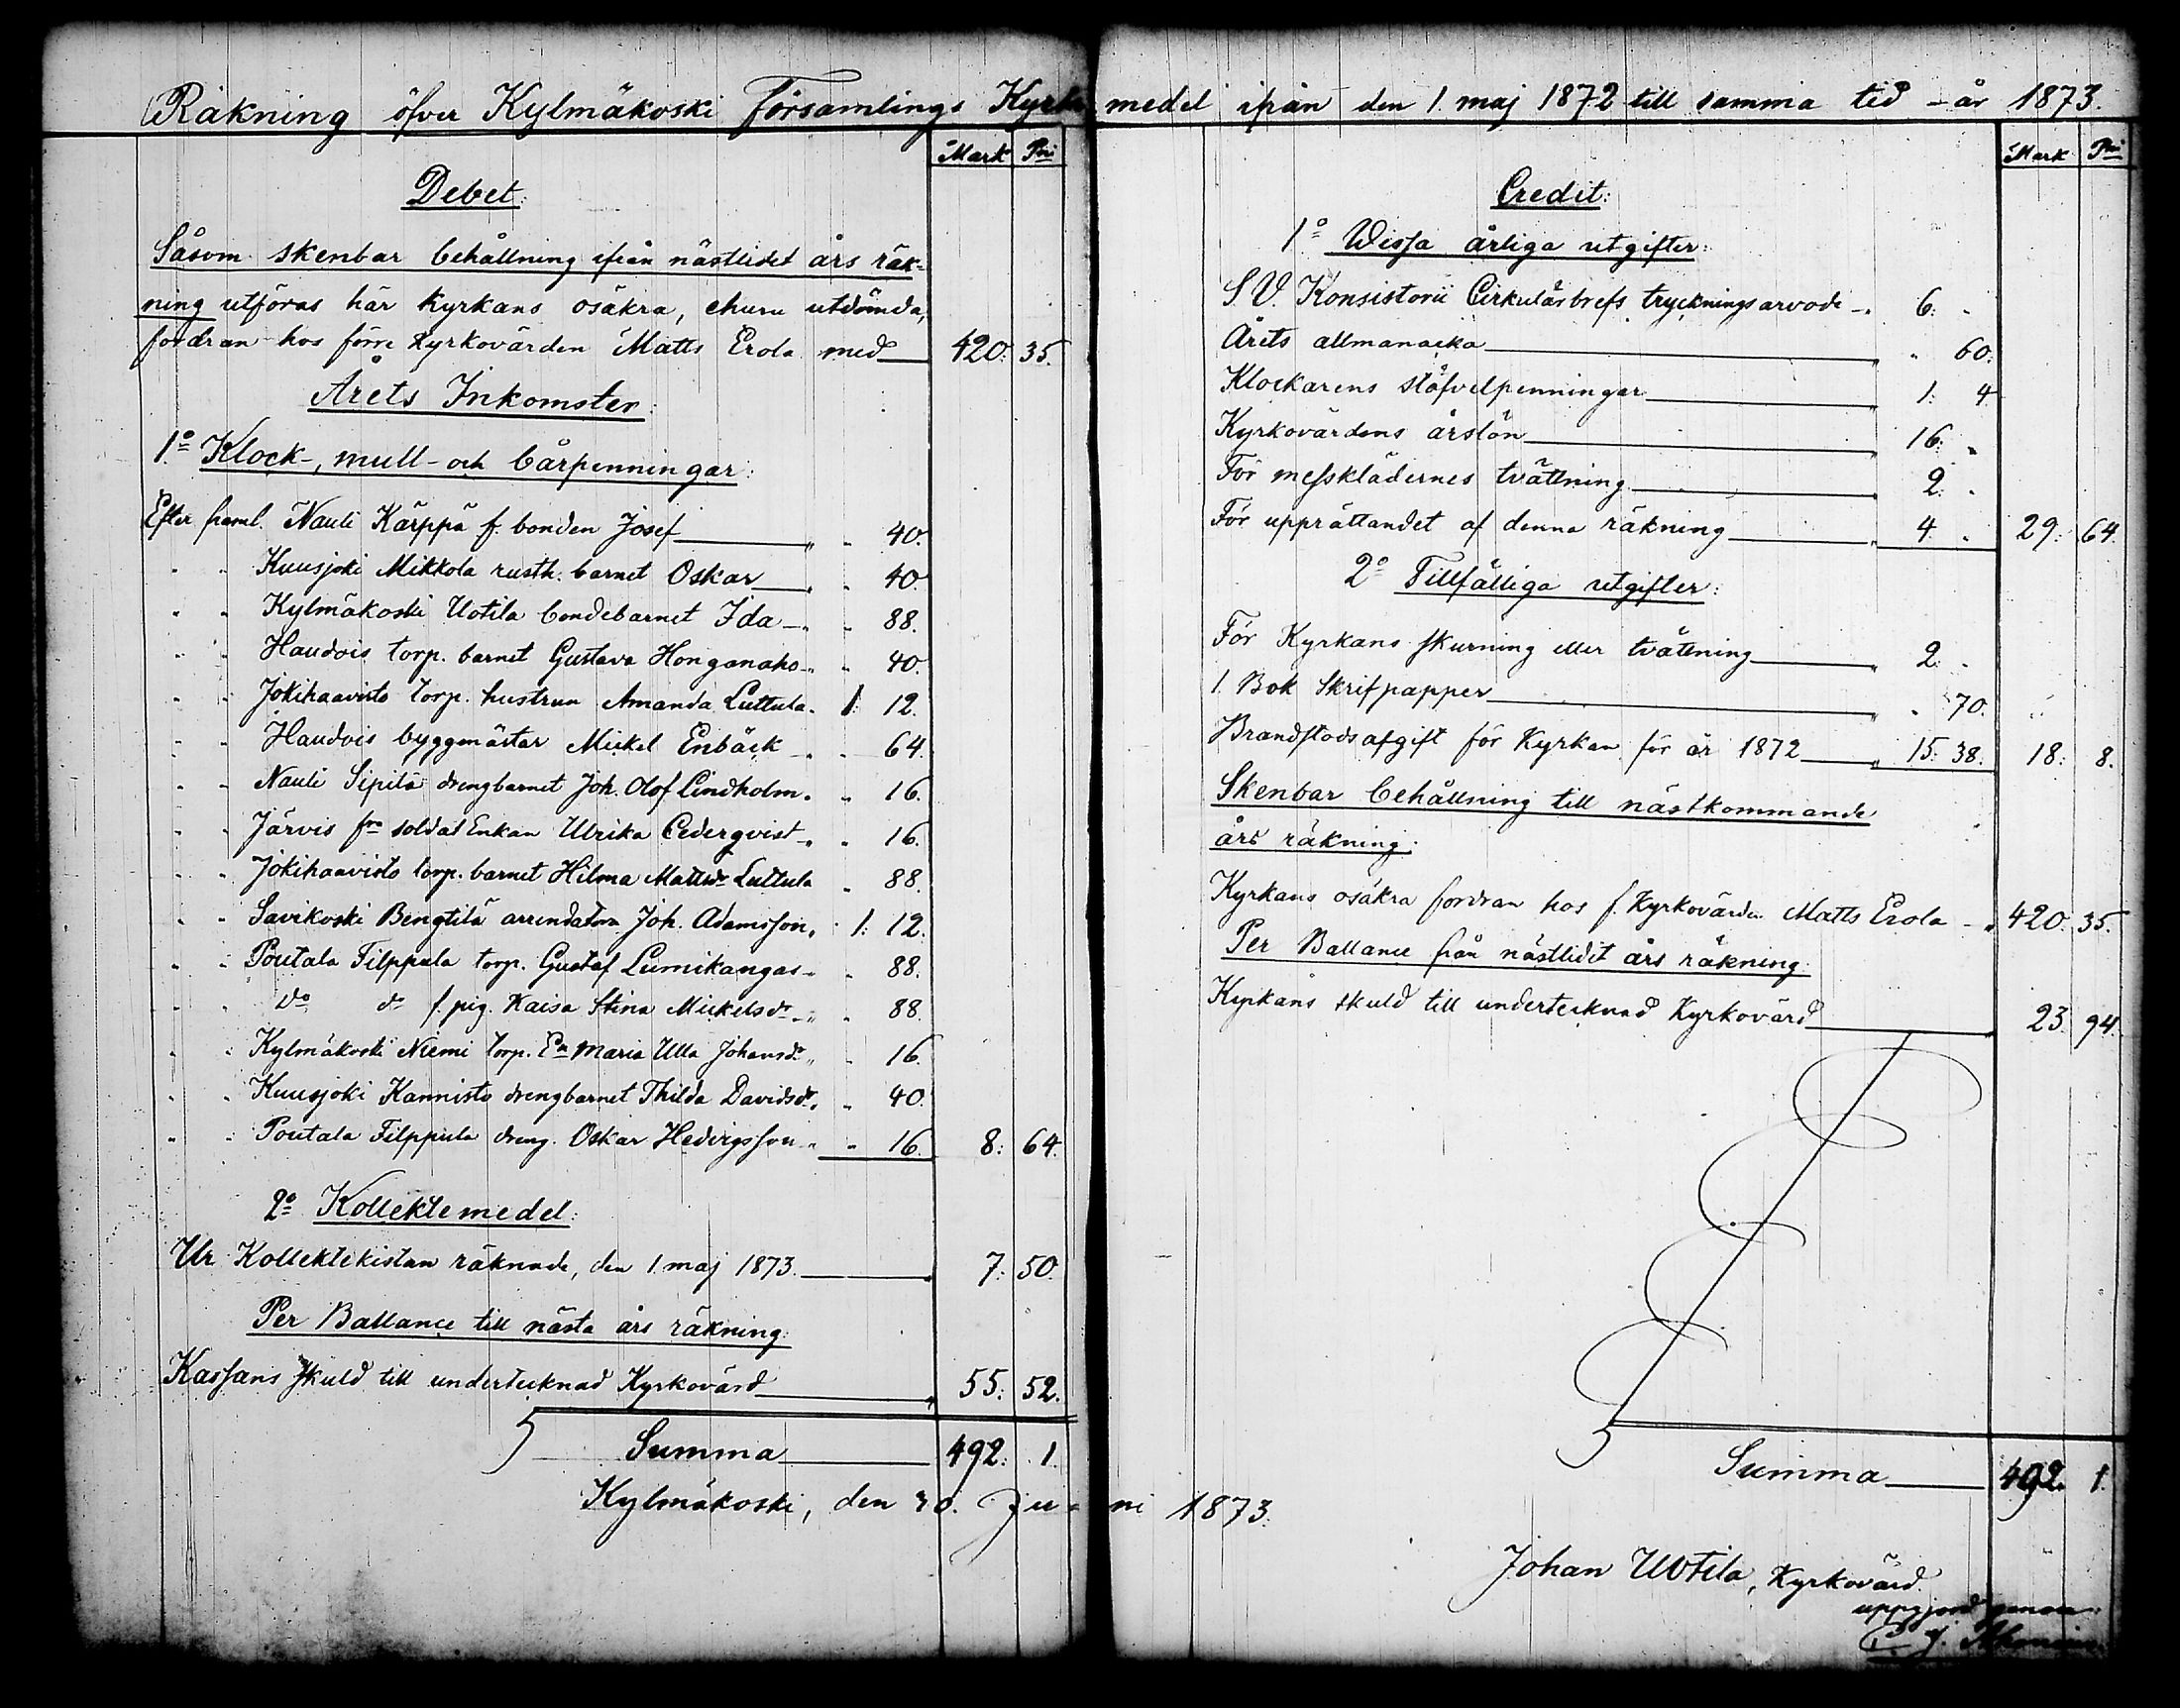 Räkning öfver Kylmäkoski Församlings Kyrko medel ifrån den 1. maj 1872 till samma tid - år 1873.
Mark Pni
Debet:
Såsom skenbar behållning ifrån nästlidet års räk-
ning utföras här Kyrkans osäkra, ehuru utdömda,
fordran hos förre Kyrkovärden Matts Erola med 420: 35.
Årets Inkomster:
1:o Klock-, mull- och bårpenningar:
Efter framl. Nauli Kärppä f. bonden Josef " " 40.
" " Kuusjoki Mikkola rusth. barnet Oskar " " 40.
" " Kylmäkoski Uotila bondebarnet Ida " " 88.
" " Haudois torp. barnet Gustava Honganaho " " 40.
" " Jokihaavisto torp. hustrun Amanda Luttula " 1: 12.
" " Haudois byggmästar Mickel Enbäck " " 64.
" " Nauli Sipilä drengbarnet Joh. Olof Lindholm " " 16.
" " Järvis fre soldat Enkan Ulrika Cederqvist " " 16.
" " Jokihaavisto torp. barnet Hilma Mattsdr Luttula " 88.
" " Savikoski Bengtilä arrendatorn Joh. Adamsson " 1: 12.
" " Poutala Filppula torp. Gustaf Lumikangas " " 88.
" " do do f. pig. Kaisa Stina Mickelsdr " " 88.
" " Kylmäkoski Niemi torp. En Maria Ulla Johansdr " " 16.
" " Kuusjoki Kannisto drengbarnet Thilda Davidsdr " " 40.
" " Poutala Filppula dreng. Oskar Hedvigsson " " 16. 8: 64.
2:o Kollektemedel:
Ur Kollektekistan räknade, den 1. maj 1873. " 7: 50.
Per Ballance till nästa års räkning:
Kassans skuld till undertecknad Kyrkovärd " 55: 52.
Summa 492: 1.
Kylmäkoski, den 30. Ju- ni 1873.
Mark Pni
Credit:
1:o Wissa årliga utgifter:
S. V. Konsistorii Cirkulärbrefs tryckningsarvode " 6: "
Årets allmanacka " " 60.
Klockarens stöfvelpenningar " 1: 4
Kyrkovärdens årslön " 16: "
För messklädernes tvättning " 2: "
För upprättandet af denna räkning " 4: " 29: 64.
2:o Tillfälliga utgifter:
För Kyrkans skurning eller tvättning " 2: "
1. Bok Skrifpapper " " 70.
Brandstodsafgift för Kyrkan för år 1872 " 15: 38. 18: 8.
Skenbar behållning till nästkommande
års räkning:
Kyrkans osäkra fordran hos f. Kyrkovärden Matts Erola " 420. 35.
Per Ballance från nästlidit års räkning:
Kyrkans skuld till undertecknad Kyrkovärd " 23. 94.
Summa 492. 1.
Johan Uotila, Kyrkovärd.
uppgjord genom